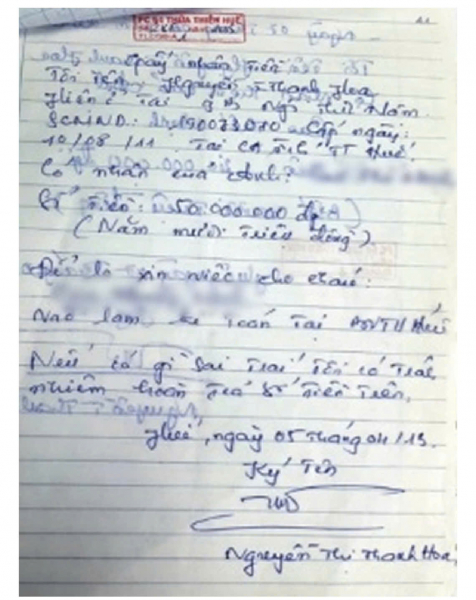 THỪA THIÊN HUẾ
Giấy nhận tiền
Tôi tên Nguyễn Thanh Hoa
Hiện ở tại
SCMND: 190073010 Cấp ngày:
10/08/11. Tại CA tỉnh TT Huế.
Có nhận của Anh:
Số tiền: 50.000.000 đ
(Năm mươi triệu đồng).
Để lo xin việc cho cháu.
Vào làm kế toán tại BVTW Huế
Nếu có gì sai trái tôi có trách
nhiệm hoàn trả số tiền trên.
Huế, ngày 05 tháng 04/13.
Ký tên
Nguyễn Thị Thanh Hoa